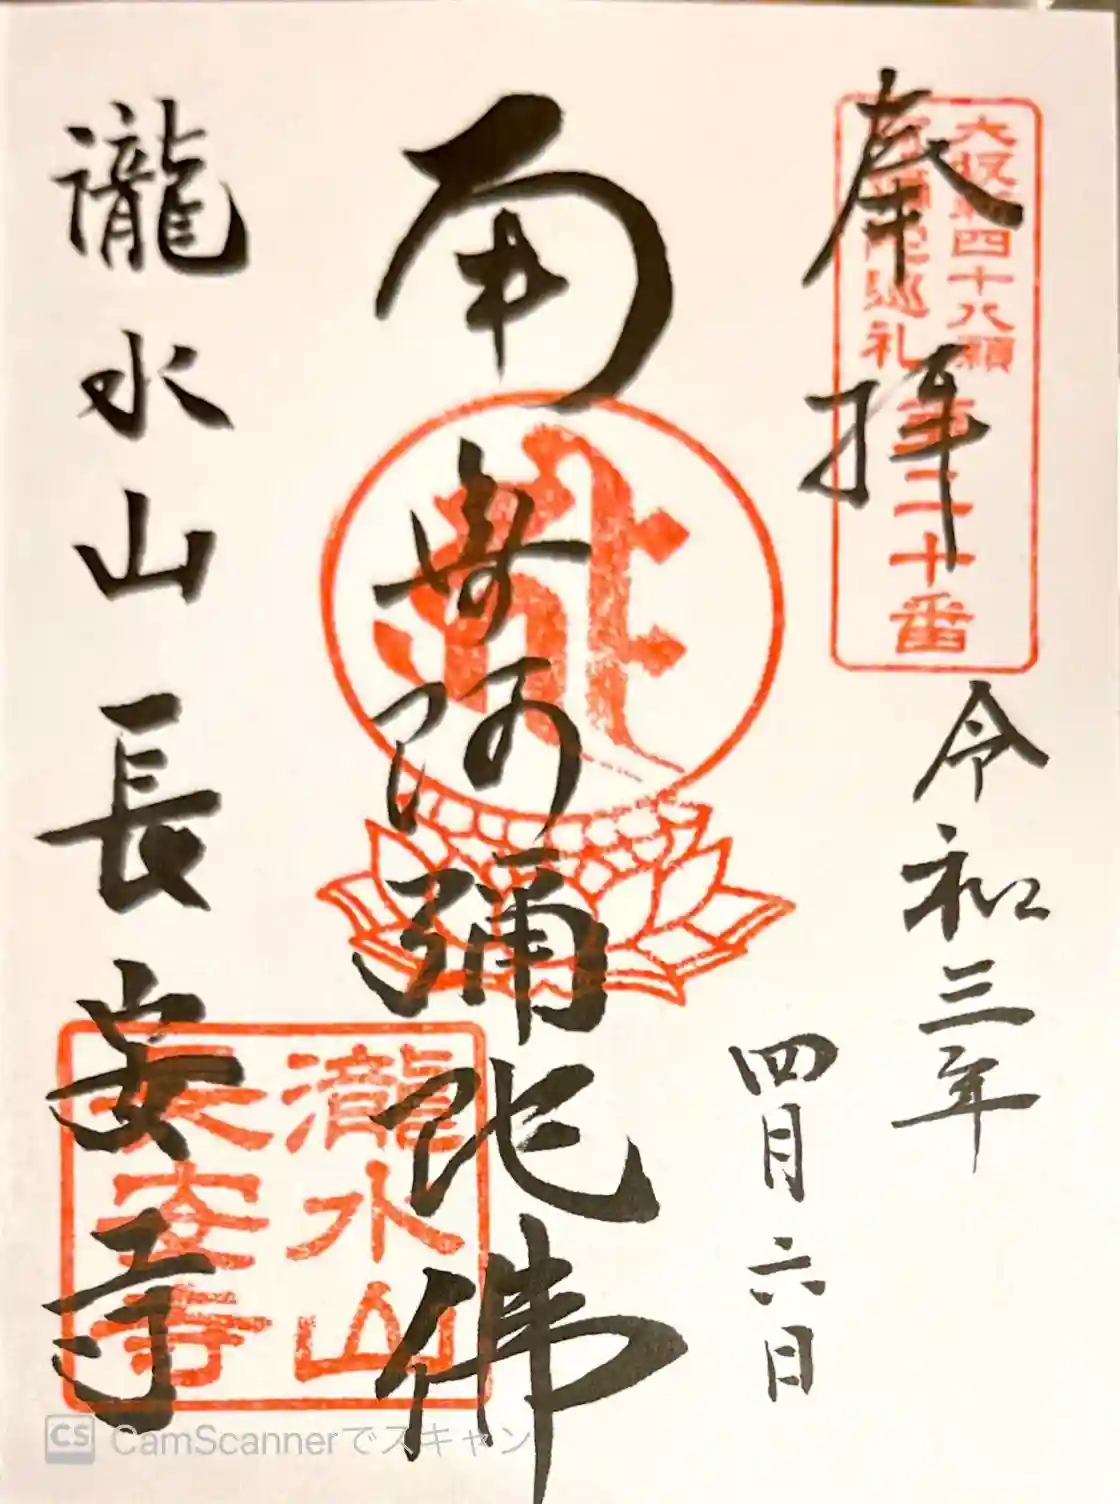 奉拝
大坂新四十八願
阿弥陀巡礼
第二十番
令和三年
四月六日
南無阿彌陀佛
瀧水山長安寺
瀧水山
長安寺
CS CamScannerでスキャン